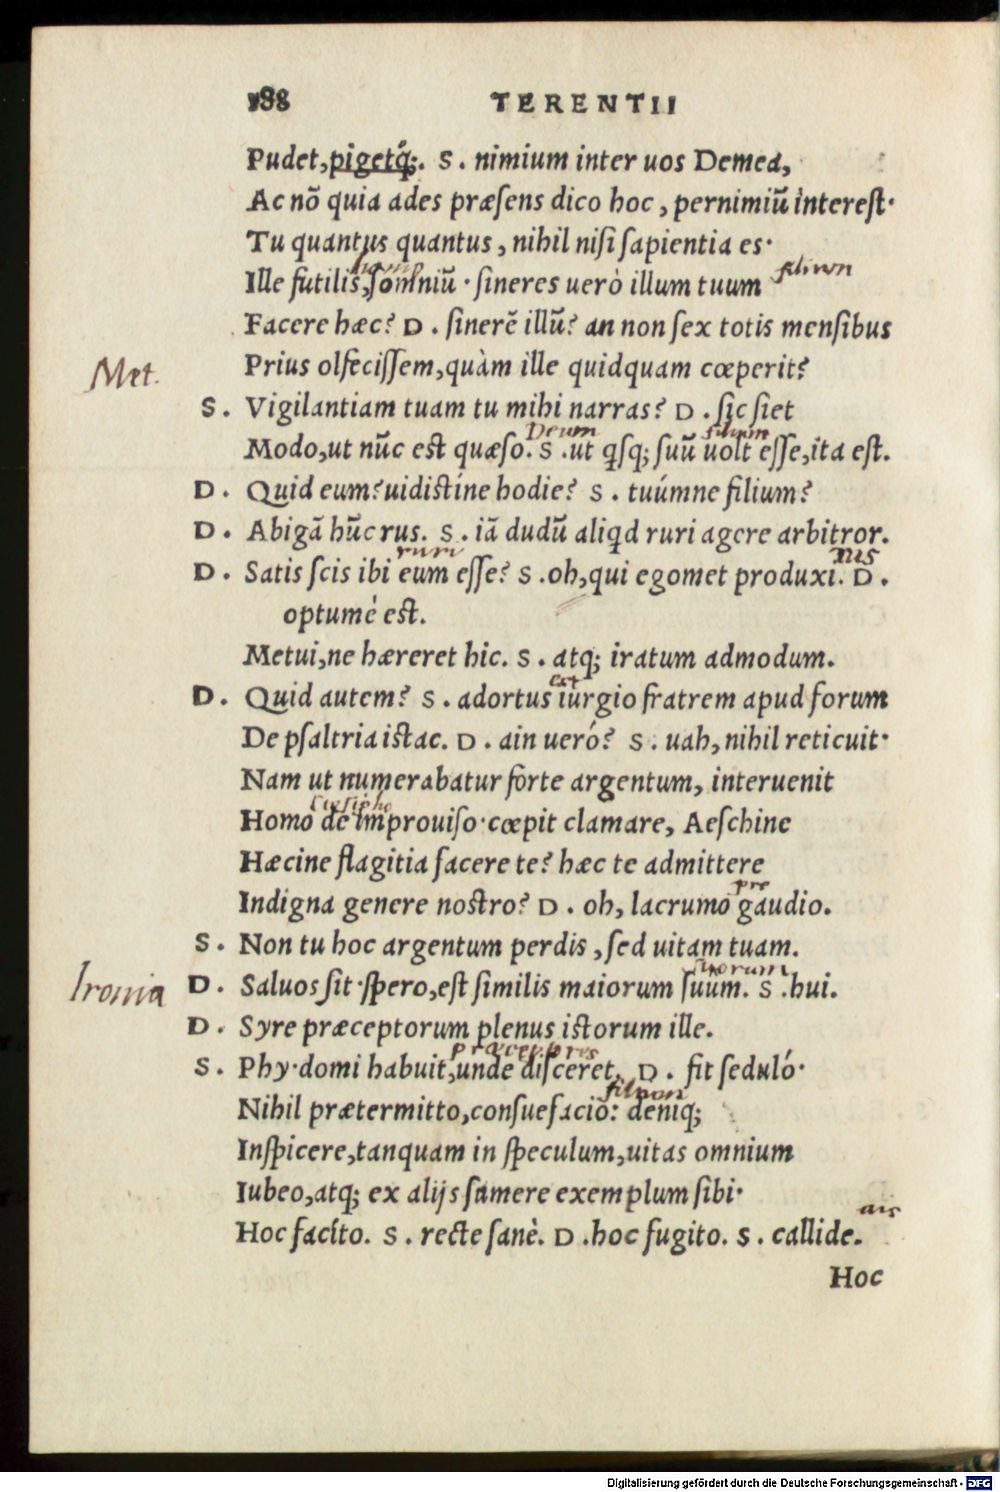 188 TERENTII
Pudet,pigetq́;. S. nimium inter uos Demea,
Ac nõ quia ades præſens dico hoc, pernimiũ intereſt·
Tu quantus quantus, nihil niſi ſapientia es·
filium
Ille futilis,ſomniũ · ſineres uerò illum tuum
Facere hæc? D. ſinerẽ illũ? an non ſex totis menſibus
Met.
Prius olfeciſſem,quàm ille quidquam cœperit?
S. Vigilantiam tuam tu mihi narras? D. ſic ſiet
Deum filium
Modo,ut nũc eſt quæſo. S. ut qſq; ſuũ uolt eſſe,ita eſt.
D. Quid eum?uidiſtíne hodie? S. tuúmne filium?
D. Abigã hũc rus. S. iã dudũ aliqd ruri agere arbitror.
ruri
D. Satis ſcis ibi eum eſſe? S. oh,qui egomet produxi. D.
optumè eſt.
Metui,ne hæreret hic. S. atq; iratum admodum.
est
D. Quid autem? S. adortus iurgio fratrem apud forum
De pſaltria iſtac. D. ain ueró? S. uah, nihil reticuit·
Nam ut numerabatur forte argentum, interuenit
Ctesipho
Homo de improuiſo·cœpit clamare, Aeſchine
Hæcine flagitia facere te? hæc te admittere
pre
Indigna genere noſtro? D. oh, lacrumo gaudio.
S. Non tu hoc argentum perdis, ſed uitam tuam.
suorum
Ironia
D. Saluos ſit·ſpero,eſt ſimilis maiorum ſuûm. S. hui.
D. Syre præceptorum plenus iſtorum ille.
præceptores
S. Phy·domi habuit,unde diſceret, D. fit ſeduló·
filium
Nihil prætermitto,conſuefacio: deniq;
Inſpicere,tanquam in ſpeculum,uitas omnium
Iubeo,atq; ex alijs ſumere exemplum ſibi·
ais
Hoc facíto. S. recte ſanè. D. hoc fugito. S. callide.
Hoc
Digitalisierung gefördert durch die Deutsche Forschungsgemeinschaft - DFG